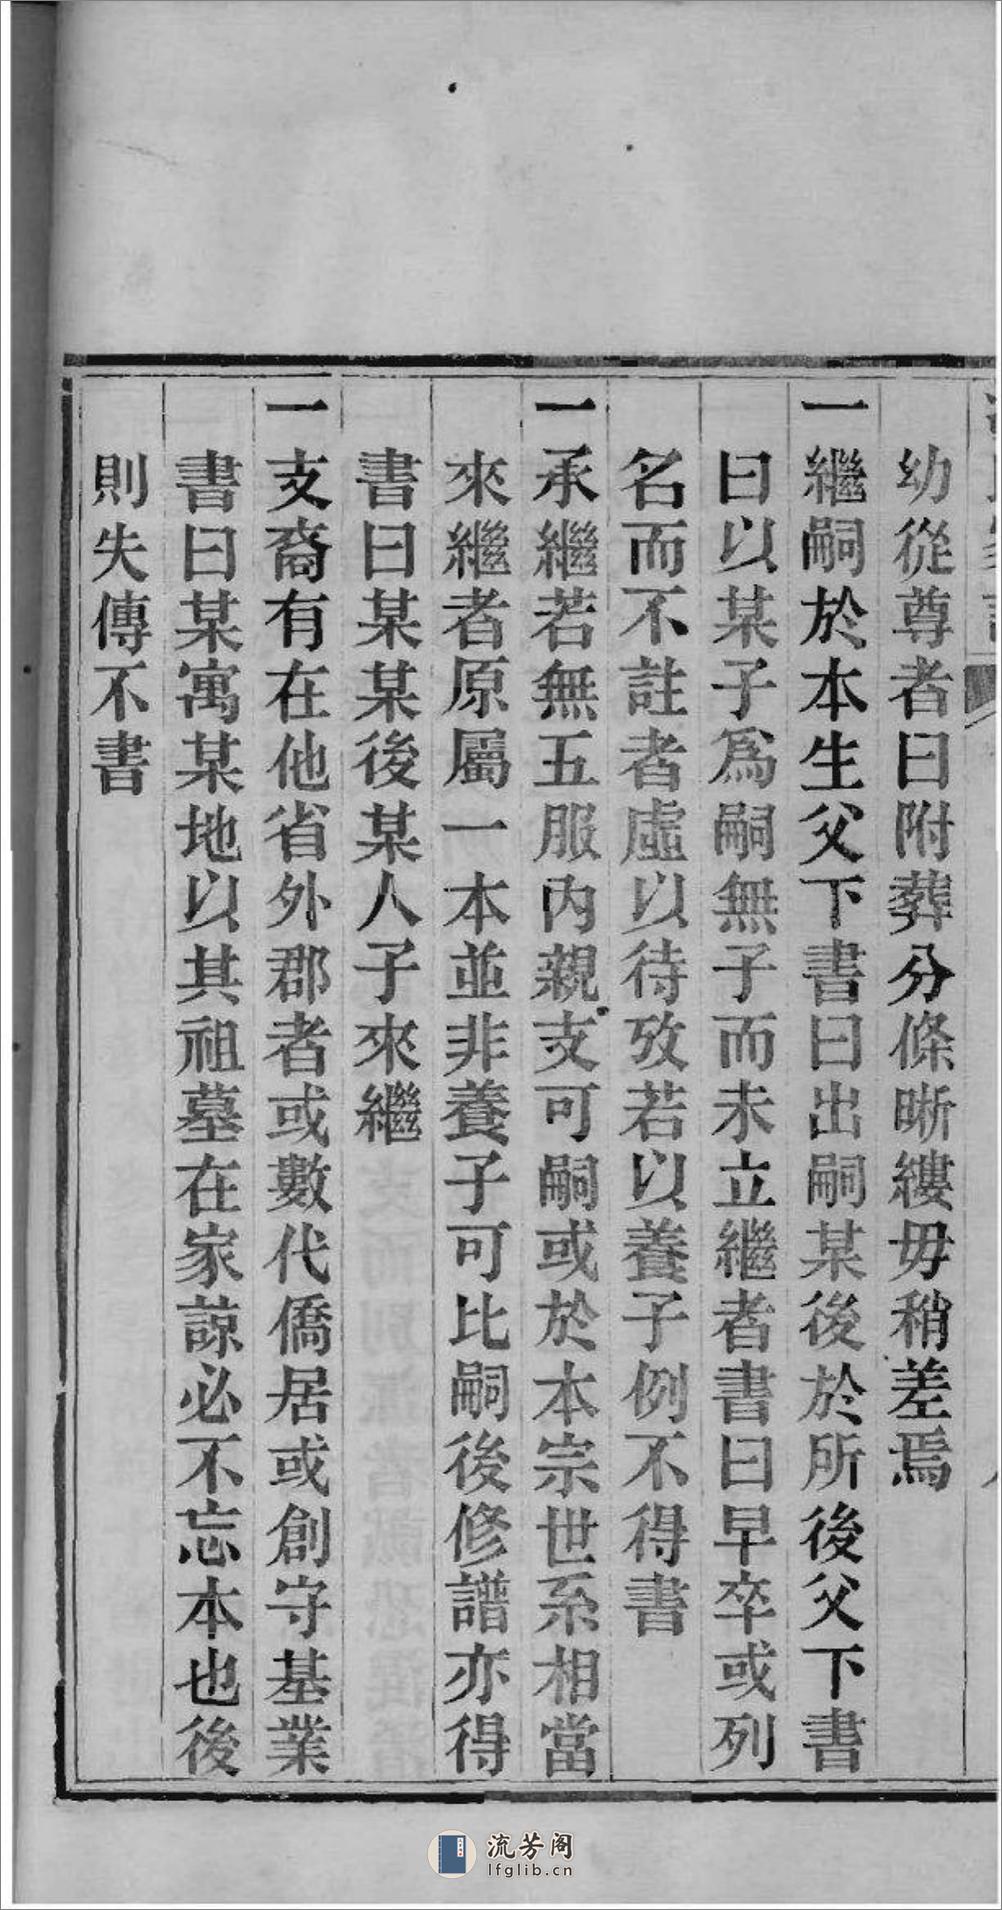 幼從尊者曰附葬分條晰縷毋稍差焉
一繼嗣於本生父下書曰出嗣某後於所後父下書
曰以某子爲嗣無子而未立繼者書曰早卒或列
名而不註者虛以待攷若以養子例不得書
一承繼若無五服內親支可嗣或於本宗世系相當
來繼者原屬一本並非養子可比嗣後修譜亦得
書曰某某後某人子來繼
一支裔有在他省外郡者或數代僑居或創守基業
書曰某寓某地以其祖墓在家諒必不忘本也後
則失傳不書
流芳阁
lfglib.cn